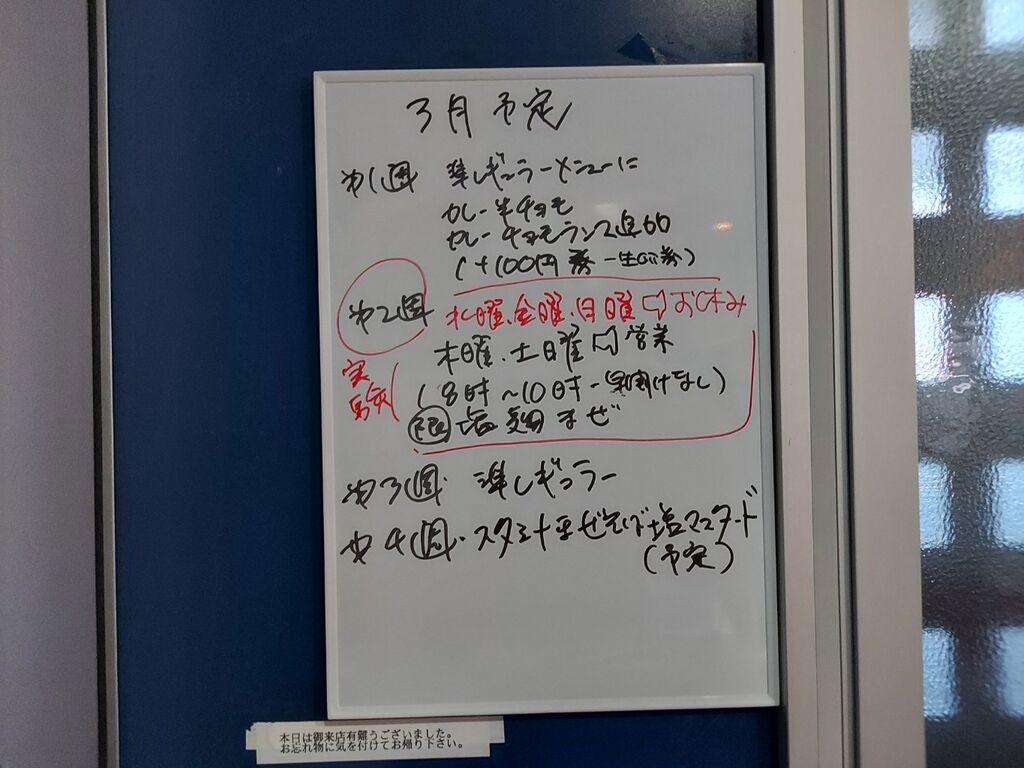 3月予定
第1週 準レギュラーメニューに
カレー半チョモ
カレーチョモランマ追加
(+100円券
第2週 水曜、金曜、日曜⇨お休み
木曜、土曜⇨営業
実験
(8時~10時
限 塩 まぜ
第3週 準レギュラー
第4週・スタミナまぜそば塩マスタード
(予定)
本日は御来店有難うございました。
お忘れ物に気を付けてお帰り下さい。